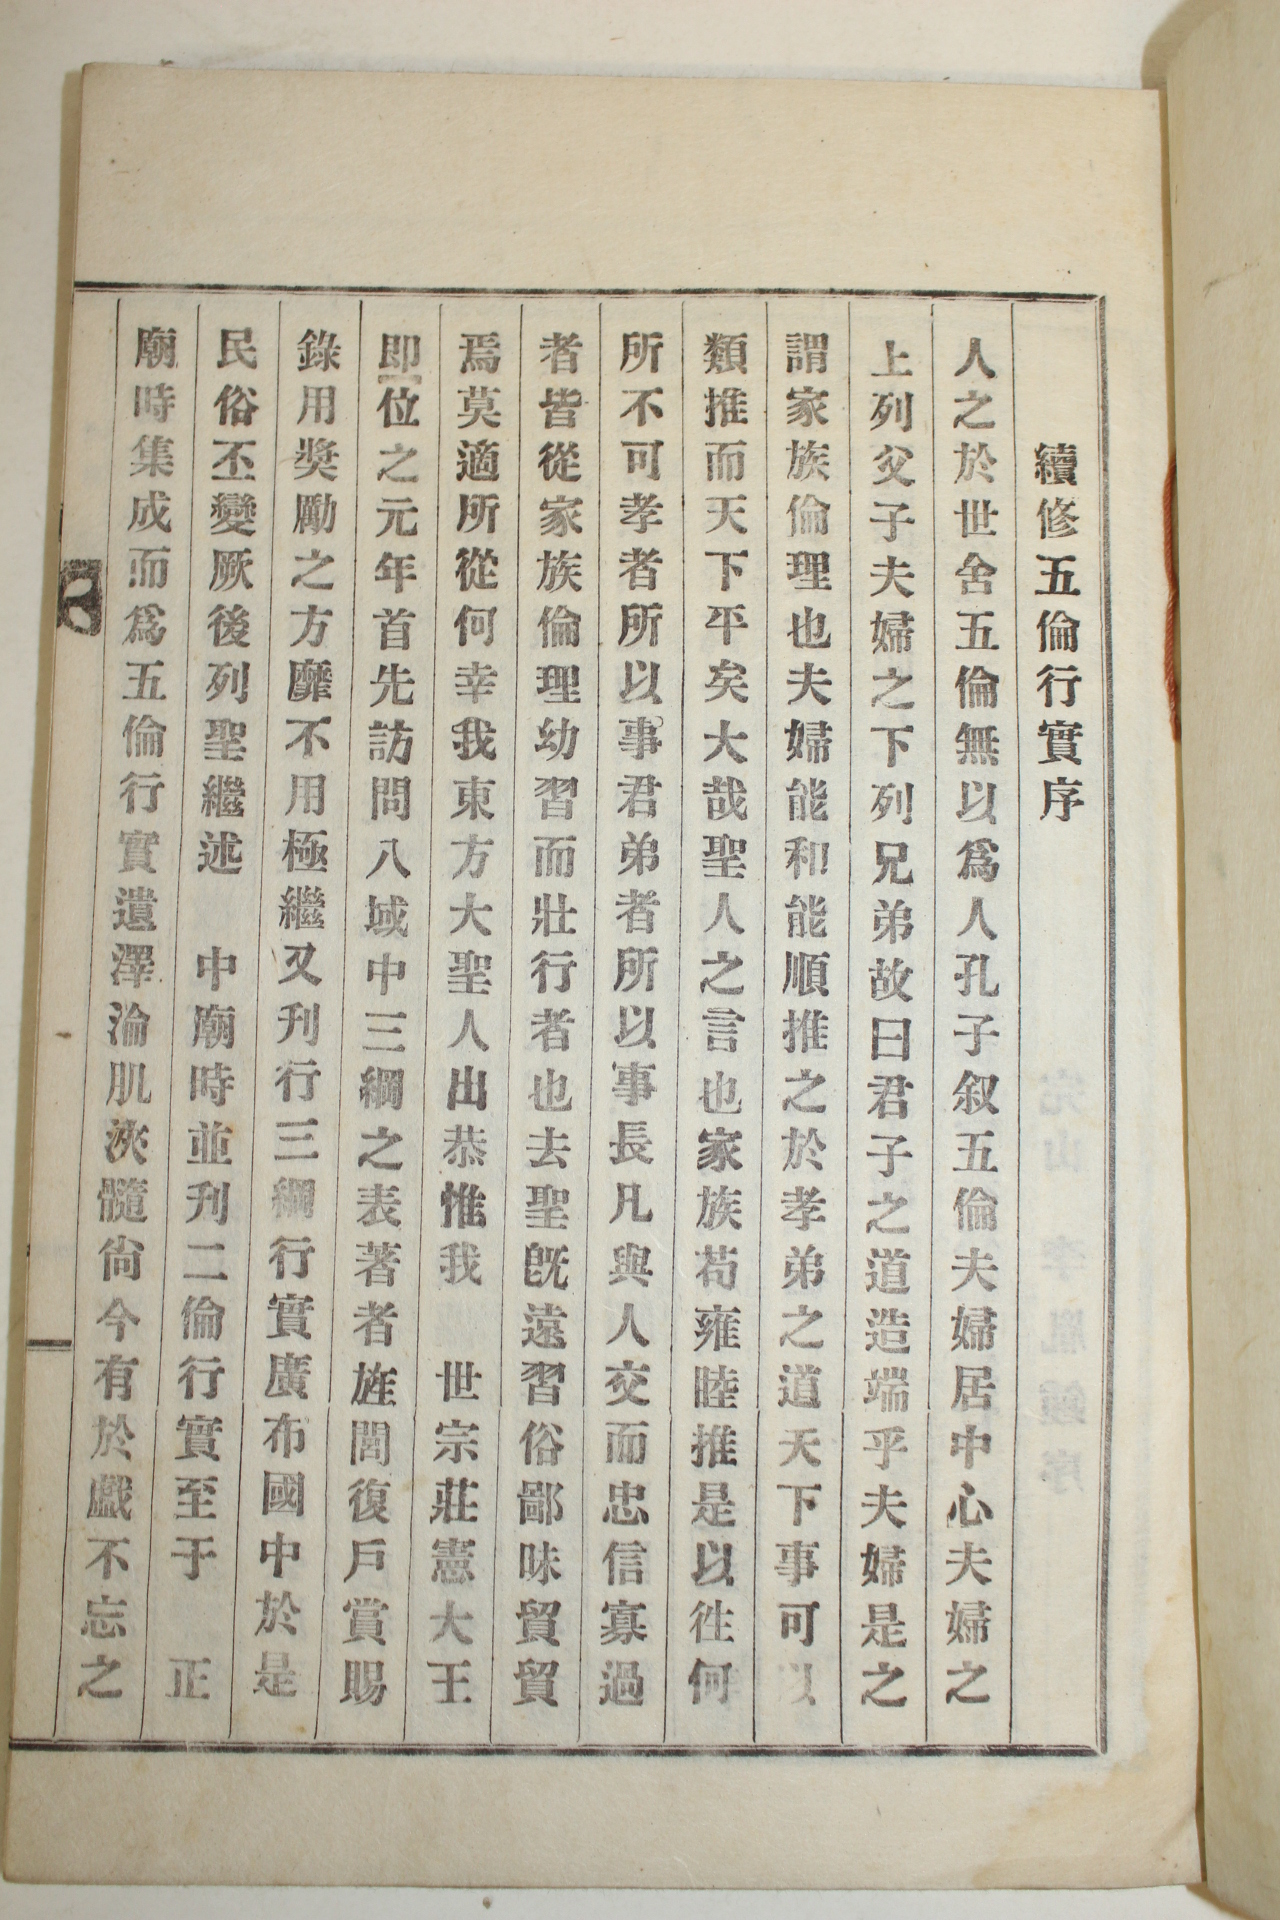 續修五倫行實序
人之於世舍五倫無以爲人孔子叙五倫夫婦居中心夫婦之
上列父子夫婦之下列兄弟故曰君子之道造端乎夫婦是之
謂家族倫理也夫婦能和能順推之於孝弟之道天下事可以
類推而天下平矣大哉聖人之言也家族苟雍睦推是以徃何
所不可孝者所以事君弟者所以事長凡與人交而忠信寡過
者皆從家族倫理幼習而壯行者也去聖旣遠習俗鄙味貿貿
焉莫適所從何幸我東方大聖人出恭惟我 世宗莊憲大王
即位之元年首先訪問八域中三綱之表著者旌閭復戶賞賜
錄用奬勵之方靡不用極繼又刋行三綱行實廣布國中於是
民俗丕變厥後列聖繼述 中廟時並刋二倫行實至于 正
廟時集成而爲五倫行實遺澤淪肌浹髓尙今有於戱不忘之